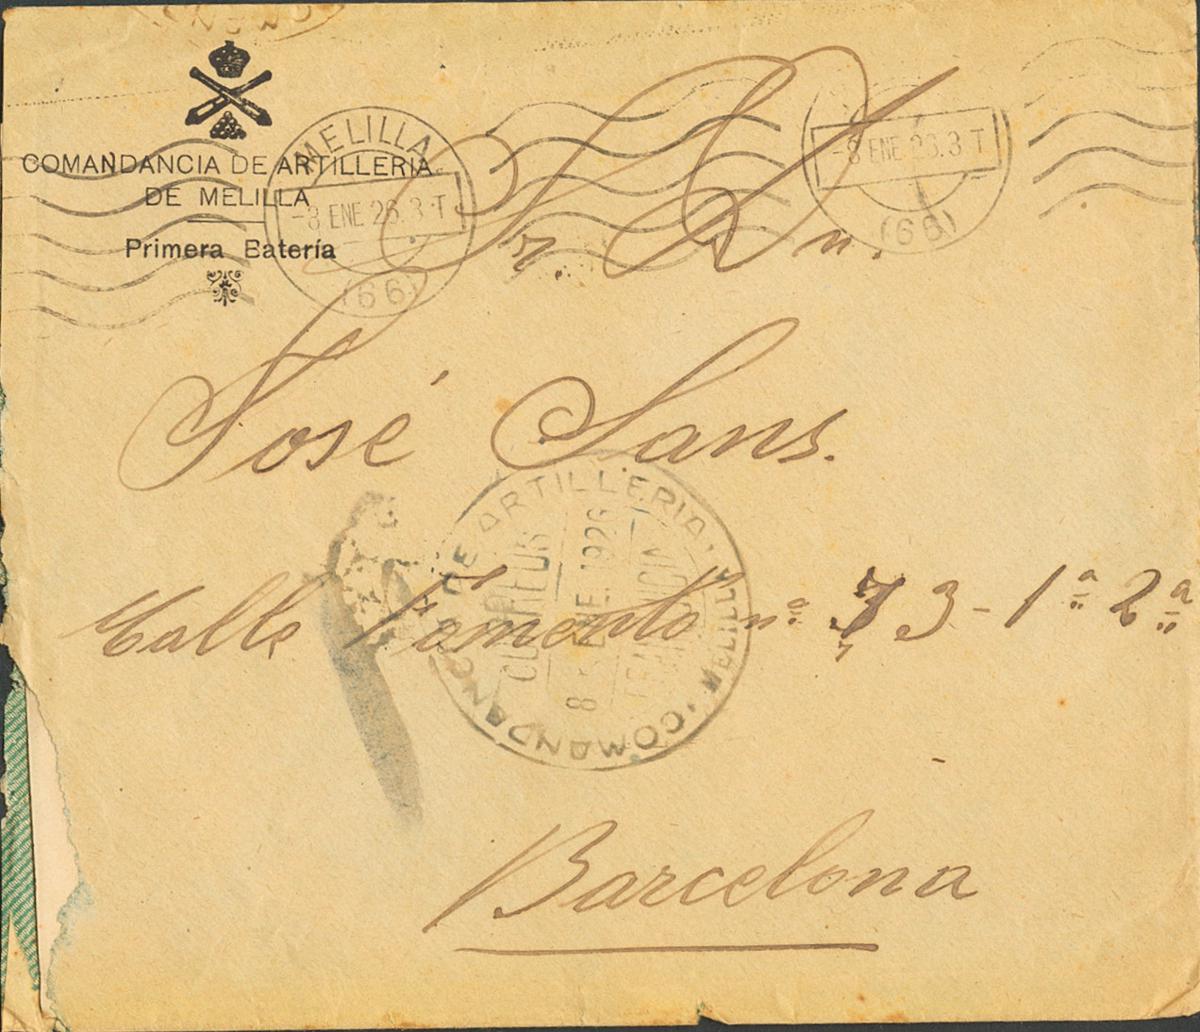 COMANDANCIA DE ARTILLERIA
DE MELILLA
Primera Batería
MELILLA
-8 ENE 26.3 T
(66)
-8 ENE 26.3 T
(66)
Sr. Dn.
José Sans.
Calle Fomento nº 73-1ª 2ª
COMANDANCIA DE ARTILLERIA · MELILLA ·
8 ENE. 1926
FRANQUICIA
Barcelona